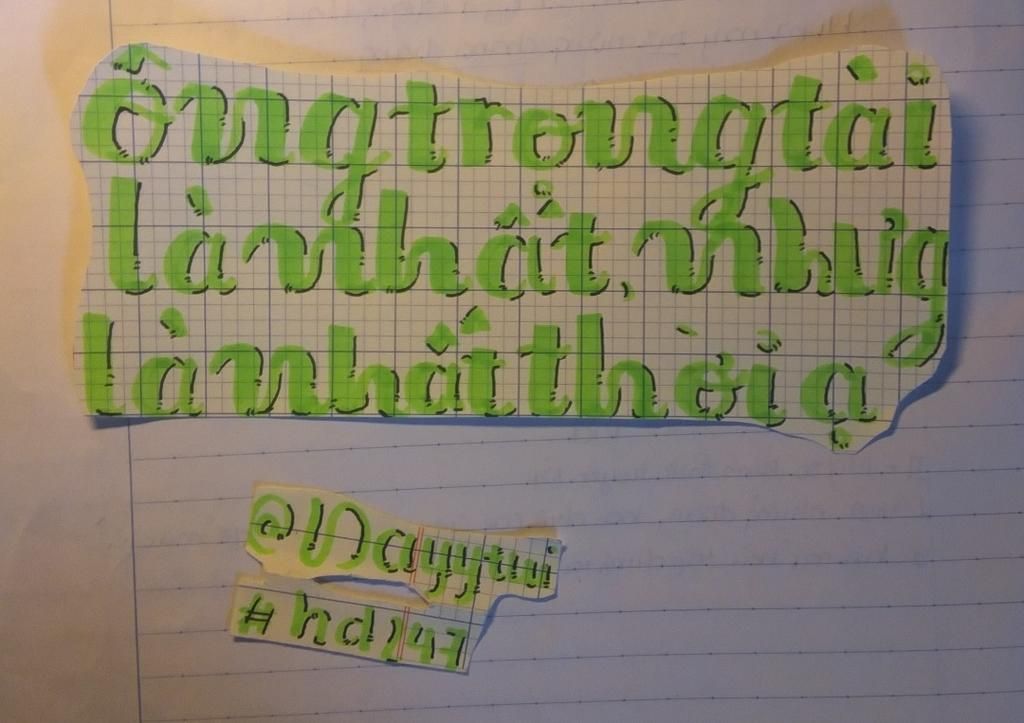 ông trọng tài
là nhất, nhưg
là nhất thời ạ
@Dayytui
#hd247